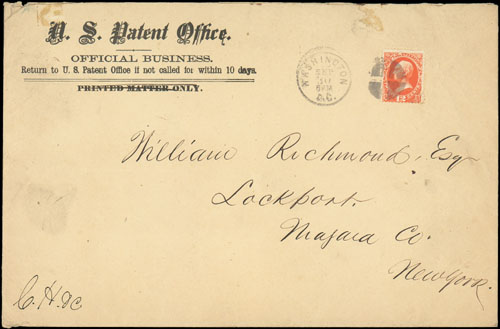 U. S. Patent Office.
OFFICIAL BUSINESS.
Return to U. S. Patent Office if not called for within 10 days.
PRINTED MATTER ONLY.
WASHINGTON
SEP
30
6PM
D.C.
William Richmond, Esq
Lockport.
Niagara Co.
New York.